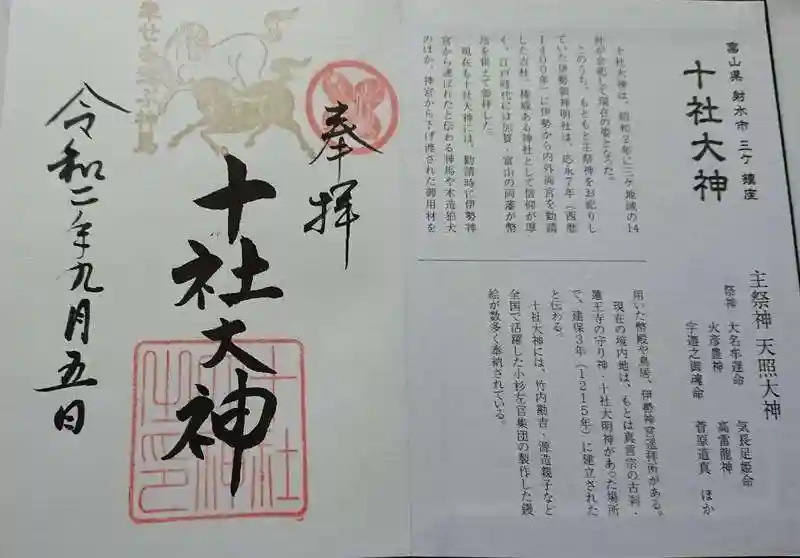 富山県 射水市 三ケ 鎮座
十社大神
十社大神は、昭和2年に三ケ地域の14
社が合祀して現在の姿となった。
このうち、もともと主祭神をお祀りし
ていた伊勢領神明社は、応永7年(西暦
1400年)に伊勢から内外両宮を勧請
した古社。権威ある神社として信仰が厚
く、江戸時代には加賀、富山の両藩が幣
現在も十社大神には、勧請時に伊勢神
宮から運ばれたと伝わる神馬や木造狛犬
のほか、神宮から下げ渡された御用材を
主祭神 天照大神
祭神 大名牟遅命 気長足姫命
火彦霊神 高龗龍神
宇迦之御魂命 菅原道真 ほか
用いた幣殿や鳥居、伊勢神宮遥拝所がある。
現在の境内地は、もとは真言宗の古刹・
蓮王寺の守り神・十社大明神があった場所
で、建保3年(1215年)に建立された
と伝わる。
十社大神には、竹内勘吉、源造親子など
全国で活躍した小杉左官集団の製作した鏝
絵が数多く奉納されている。
奉拝
十社大神
令和二年九月五日